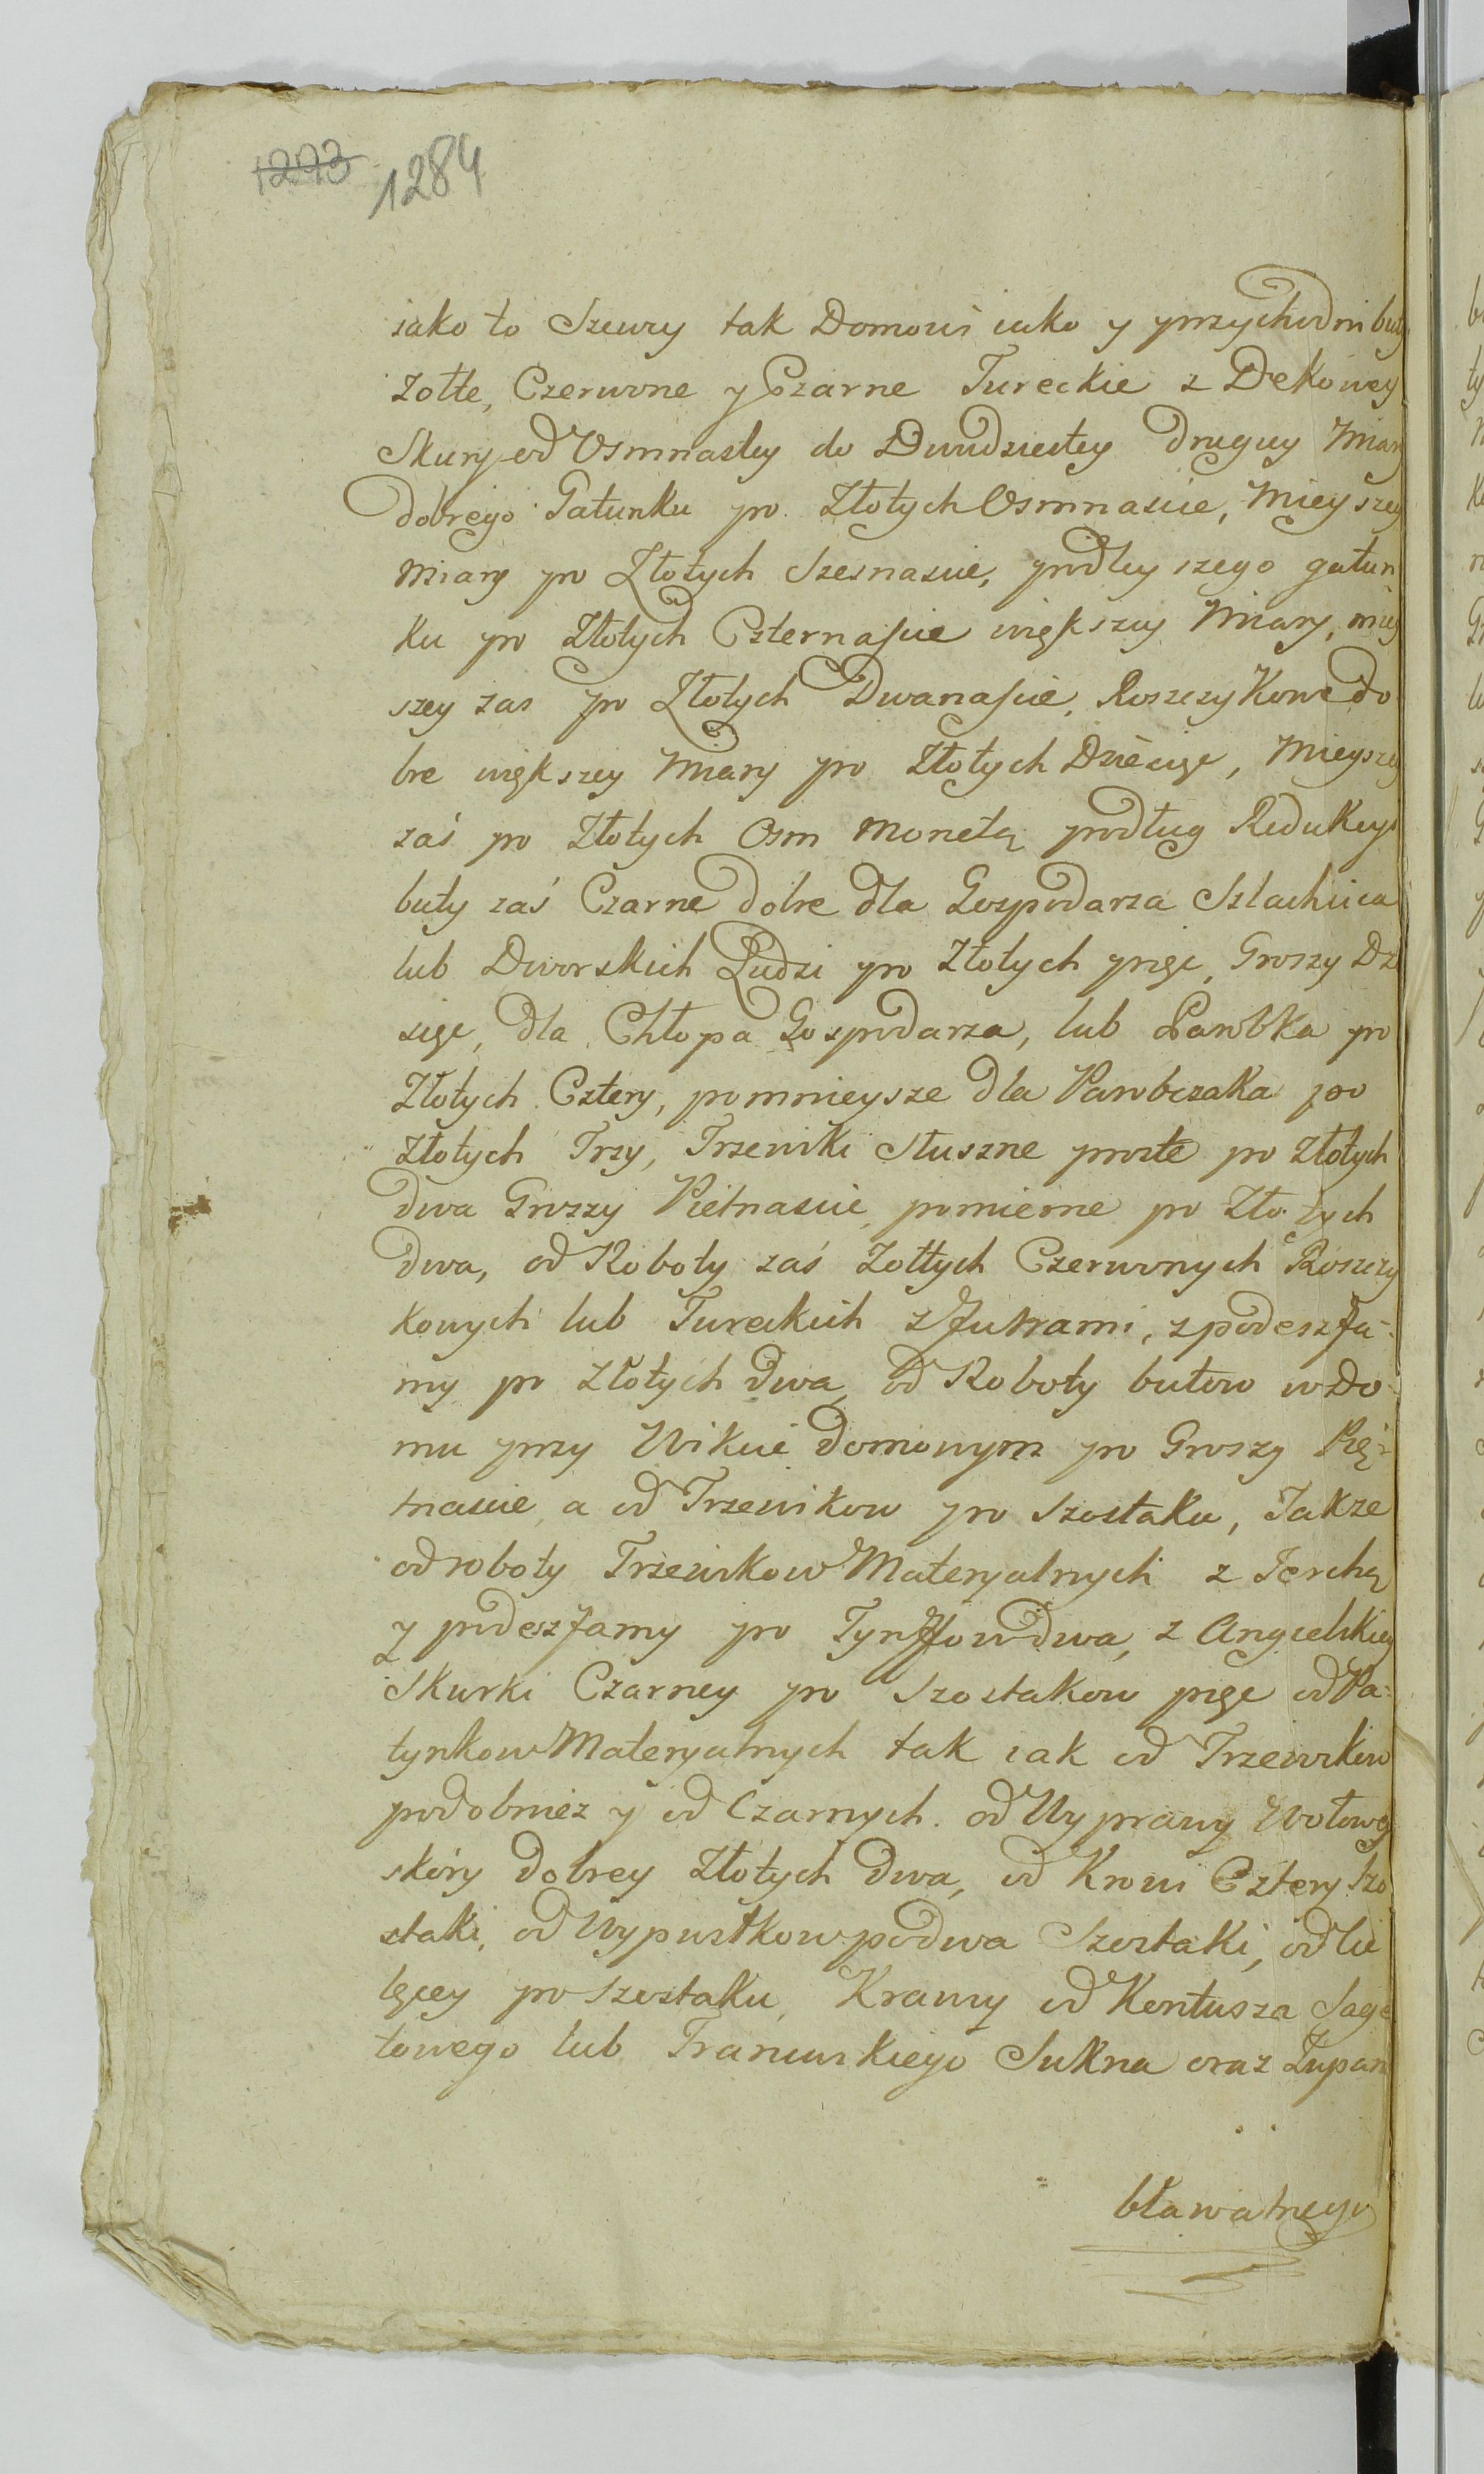 1273 1284
iako to Szewcy tak Domowi iako y przychodni buty
żołte, Czerwone y Czarne Tureckie z Dekowey
Skury od Osmnastey do Dwudziestey drugiey Miary
dobrego Gatunku po Złotych Osmnascie, Mieyszey
Miary po Złotych Szesnascie, podleyszego gatun
ku po Złotych Czternascie większey Miary, miey
szey zas po Złotych Dwanascie, Roszczykowe do
bre większey Miary po Złotych Dziesięc, Mieyszey
zaś po Złotych Osm Monetą podług Redukcyi
buty zaś Czarne dobre dla Gospodarza Szlachcica
lub Dworskich Ludzi po Złotych pięc, Groszy Dzi
sięc, dla Chłopa Gospodarza, lub Parobka po
Złotych Cztery, pomnieysze dla Parobczaka po
złotych Trzy, Trzewiki Słuszne proste po złotych
Dwa Groszy Pietnascie, pomierne po Złotych
Dwa, od Roboty zaś Zołtych Czerwonych Roszczy
kowych lub Tureckich z Futrami, z podeszfa-
my po złotych Dwa, od Roboty butow w Do-
mu przy Wikcie Domowym po Groszy Pię-
tnascie, a od Trzewikow po Szostaku, Takze
od roboty Trzewikow Materyalnych z Jerchą
y podeszfamy po Tynffow dwa, z Angielskiey
Skurki Czarney po Szostakow pięc od Pa-
tynkow Materyalnych tak iak od Trzewikow
podobniez y od Czarnych. od Wyprawy Wołowey
skóry dobrey Złotych Dwa, od Krowi Cztery Szo
staki, od Wypustkow po dwa Szostaki, od Cie
lęcey po Szostaku, Krawcy od Kontusza Sage
towego lub Francuskiego Sukna oraz Zupan
bławatnego